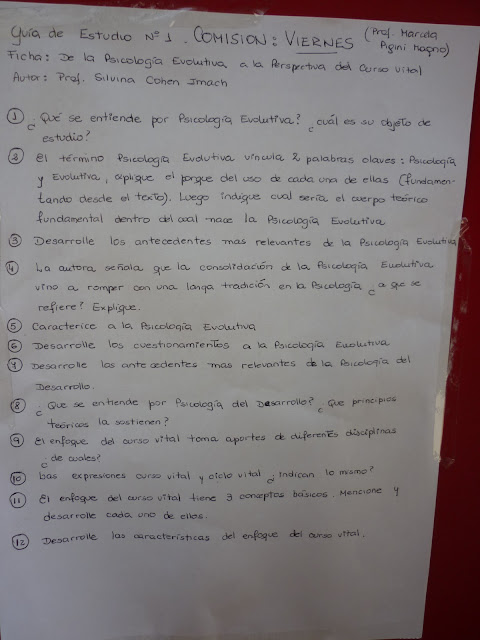 Guía de Estudio Nº 1 . COMISION: VIERNES (Prof. Marcela
Pigini Magno)
Ficha: De la Psicología Evolutiva a la Perspectiva del Curso Vital
Autor: Prof. Silvina Cohen Imach
1 ¿Qué se entiende por Psicología Evolutiva? ¿cuál es su objeto de
estudio?
2 El término Psicología Evolutiva vincula 2 palabras claves: Psicología
y Evolutiva, explique el porque del uso de cada una de ellas (fundamen-
tando desde el texto). Luego indique cual sería el cuerpo teórico
fundamental dentro del cual nace la Psicología Evolutiva
3 Desarrolle los antecedentes mas relevantes de la Psicología Evolutiva
4 La autora señala que la consolidación de la Psicología Evolutiva
vino a romper con una larga tradición en la Psicología ¿a que se
refiere? Explique.
5 Caracterice a la Psicología Evolutiva
6 Desarrolle los cuestionamientos a la Psicología Evolutiva
7 Desarrolle los antecedentes mas relevantes de la Psicología del
Desarrollo.
8 ¿Que se entiende por Psicología del Desarrollo? ¿Que principios
teóricos la sostienen?
9 El enfoque del curso vital toma aportes de diferentes disciplinas
¿de cuales?
10 Las expresiones curso vital y ciclo vital ¿indican lo mismo?
11 El enfoque del curso vital tiene 3 conceptos básicos. Mencione y
desarrolle cada uno de ellos.
12 Desarrolle las características del enfoque del curso vital.